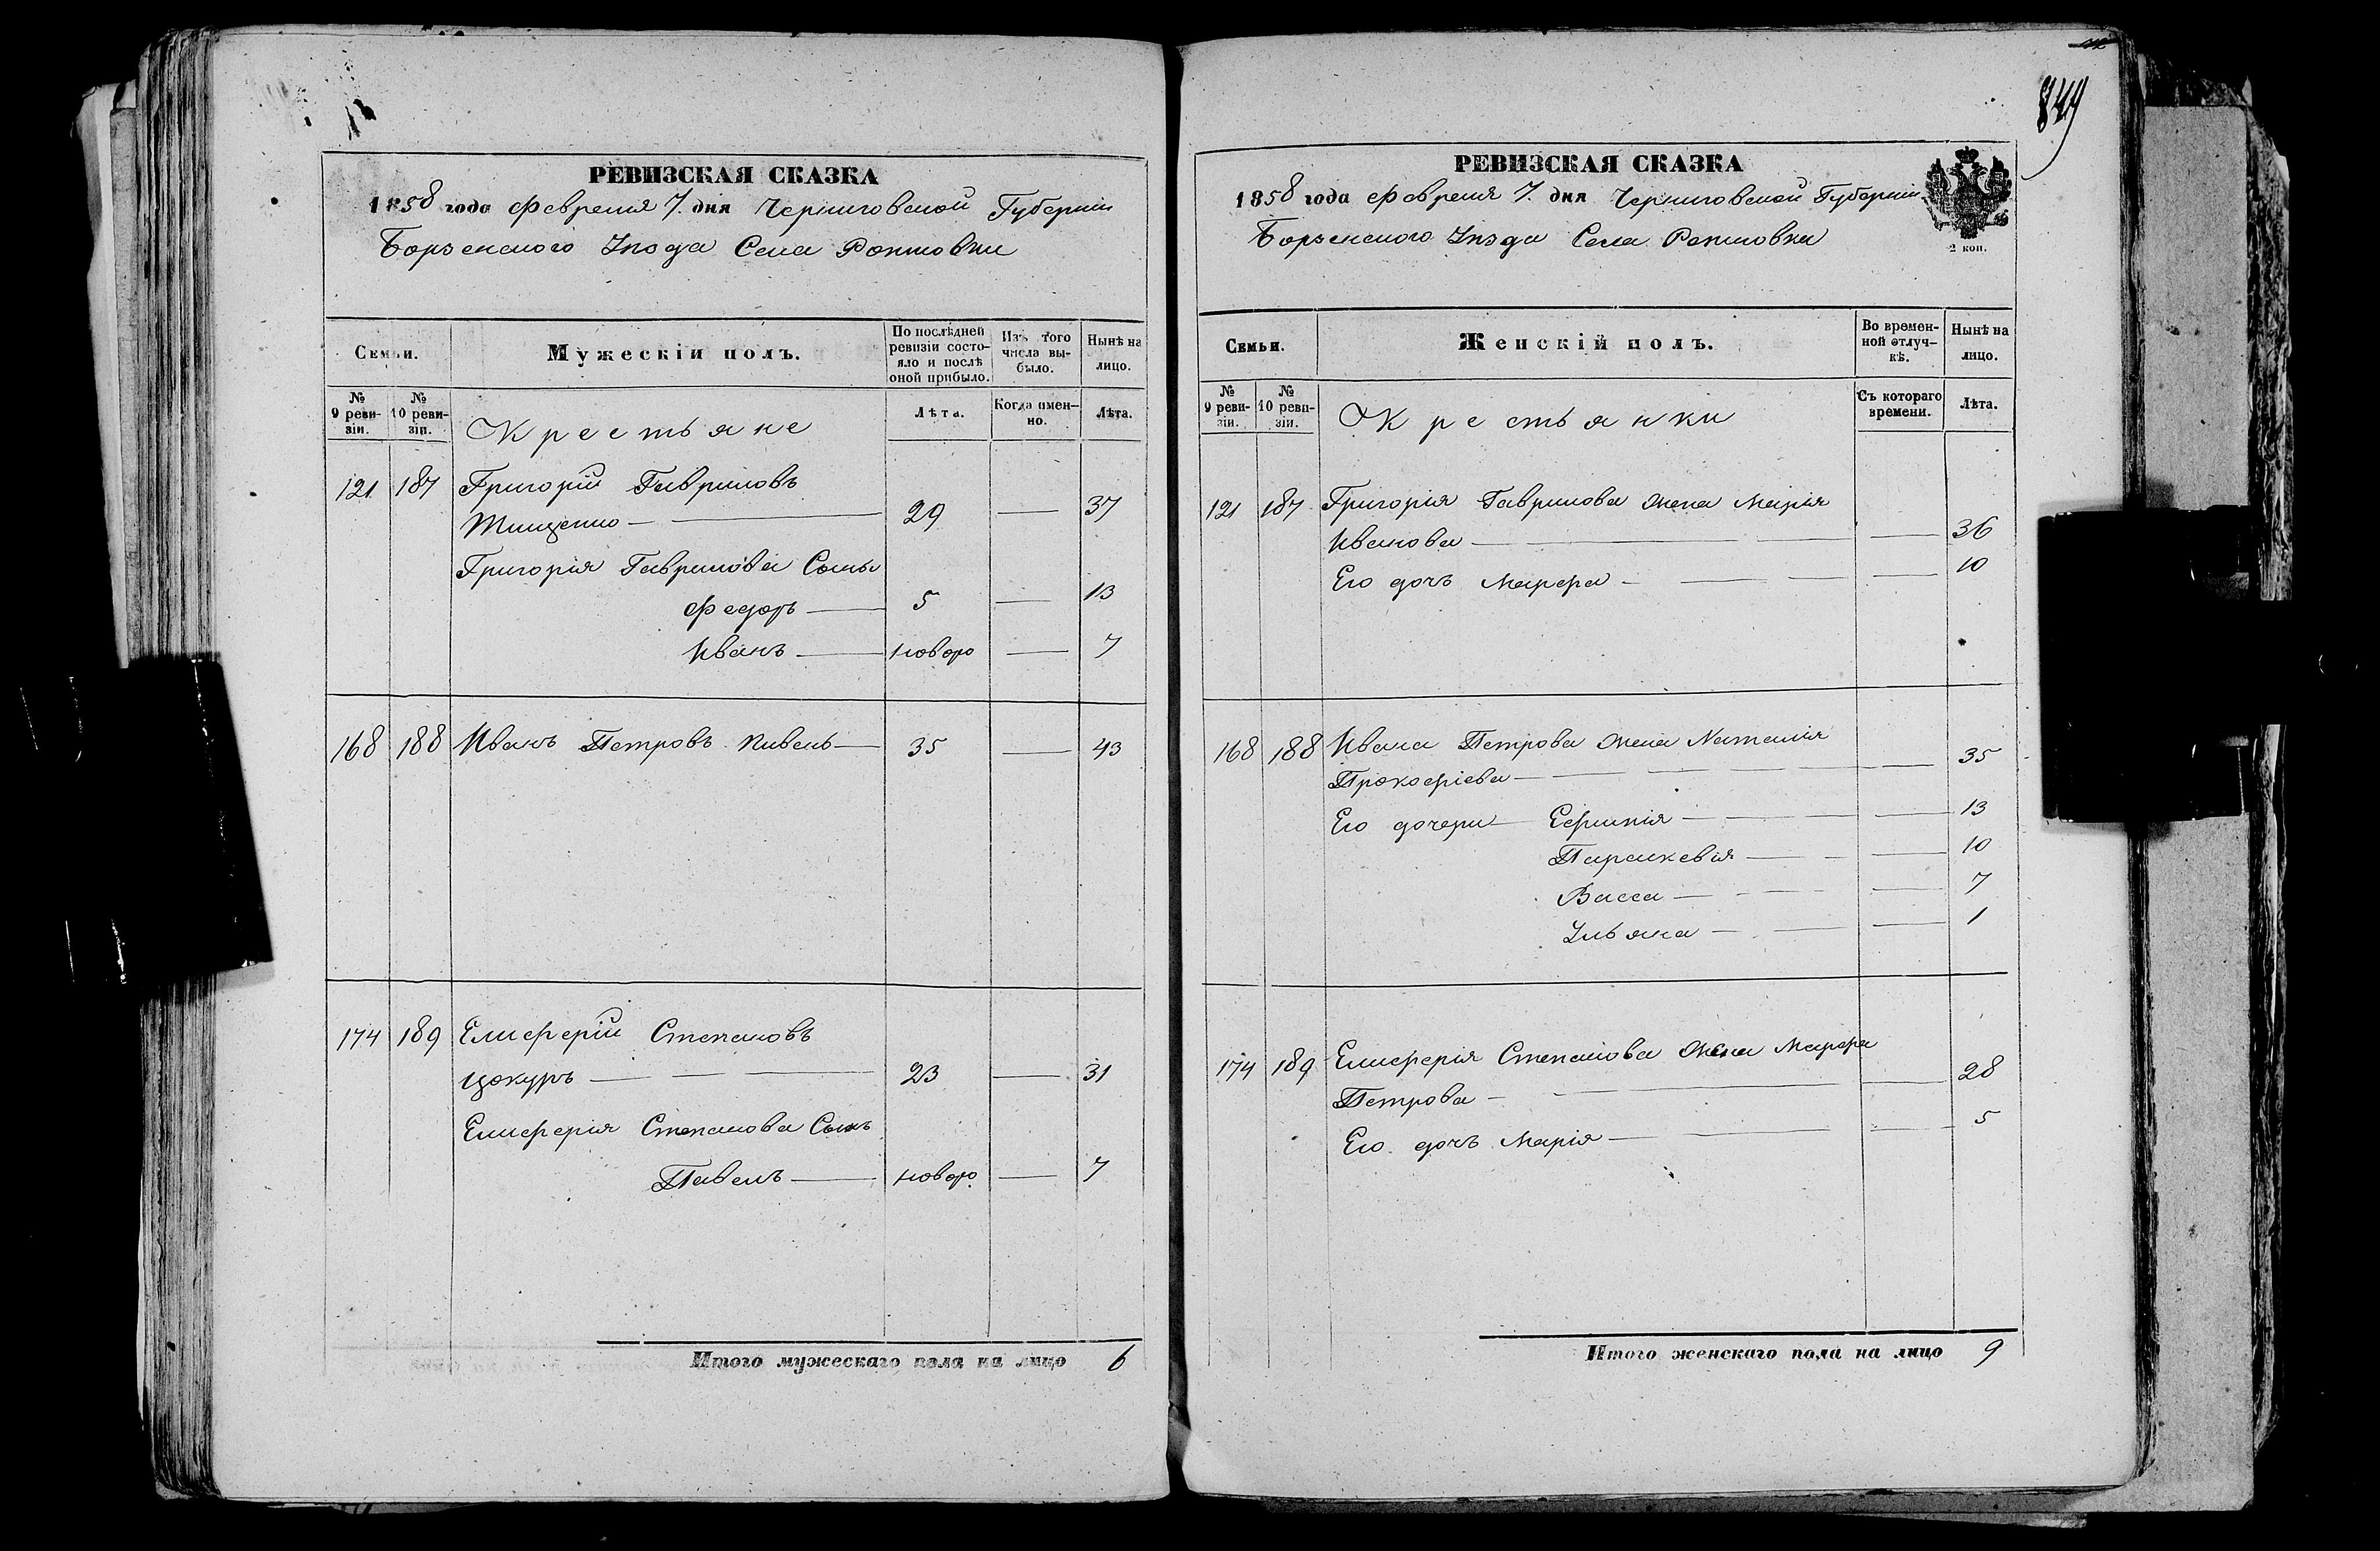 849
РЕВИЗСКАЯ СКАЗКА
1858 года Февраля 7. дня Черниговской Губерніи
Борзенского Уѣзда Села
Семьи.
Мужескій полъ.
По послѣдней ревизіи состояло и послѣ оной прибыло.
Изъ того числа выбыло.
Нынѣ на лицо.
№ 9 ревизіи.
№ 10 ревизіи.
Крестьяне
Лѣта.
Когда именно.
Лѣта.
121 187 Григорій Гавриловъ
Тищенко — 29 — 37
Григорія Гаврилова Сыны
Федоръ — 5 — 13
Иванъ — новоро — 7
168 188 Иванъ Петровъ Пивень — 35 — 43
174 189 Елиферій Степановъ
Цокуръ — 23 — 31
Елиферія Степанова Сынъ
Павелъ — новоро — 7
Итого мужескаго пола на лицо 6
РЕВИЗСКАЯ СКАЗКА
1858 года Февраля 7. дня Черниговской Губерніи
Борзенского Уѣзда Села
2 коп.
Семьи.
Женскій полъ.
Во временной отлучкѣ.
Нынѣ на лицо.
№ 9 ревизіи.
№ 10 ревизіи.
Крестьянки
Съ котораго времени.
Лѣта.
121 187 Григорія Гаврилова жена Марія
Иванова — — 36
Его дочь Марфа — — 10
168 188 Ивана Петрова жена Наталія
Прокофіева — — 35
Его дочери Ефимія — — 13
Параскевія — — 10
Васса — — 7
Ульяна — — 1
174 189 Елиферія Степанова жена Марфа
Петрова — — 28
Его дочь Марія — — 5
Итого женскаго пола на лицо 9